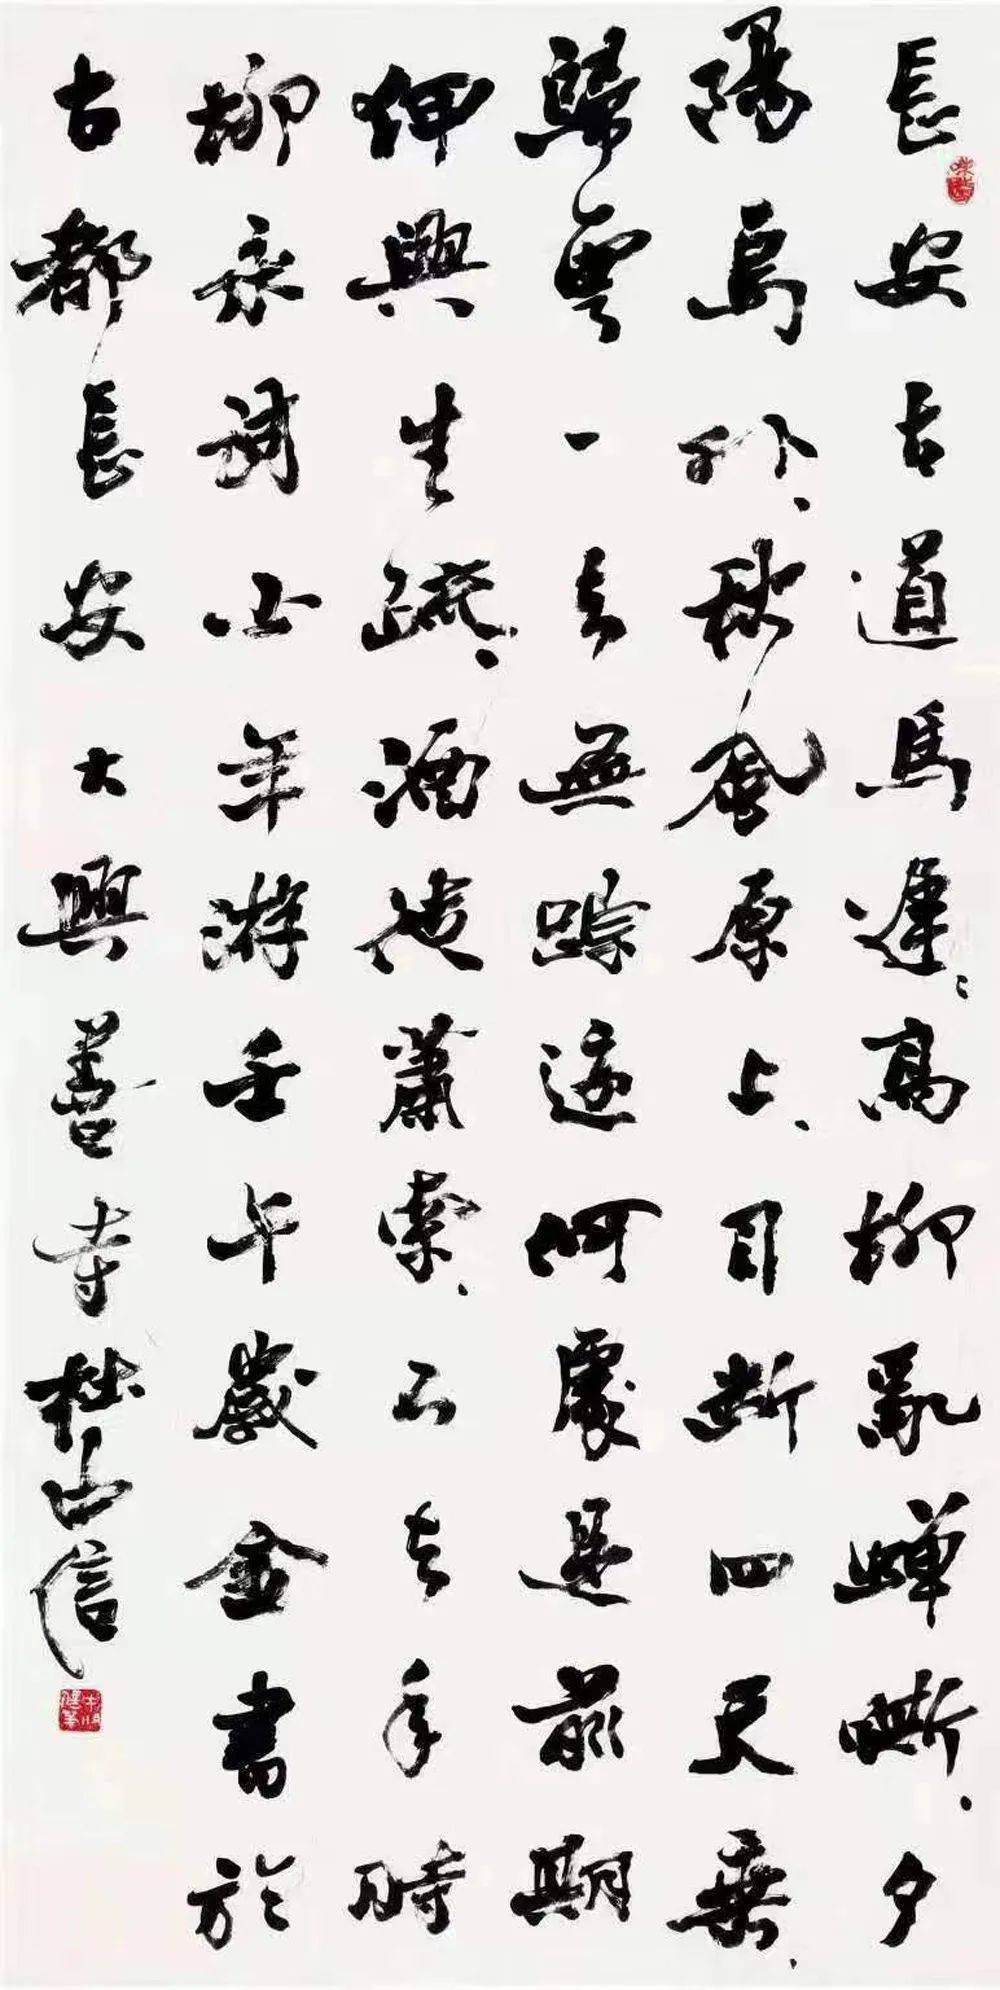 長安古道馬遲〻高柳亂蟬嘶、夕
陽島外、秋風原上、目断四天垂、
歸雲一去無踪迹何處是前期
狎興生疏、酒徒蕭索、不去年時
柳永詞少年游壬午歲金書於
古都長安大興善寺山信